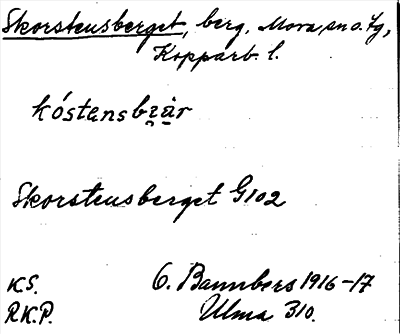 Skorstensberget, berg, Mora, sn o. tg,
Kopparb. l.
kóstensbz̯ar
Skorstensberget G102
K.S.
O. Bannbers 1916-17
R.K.P.
Ulma 310.